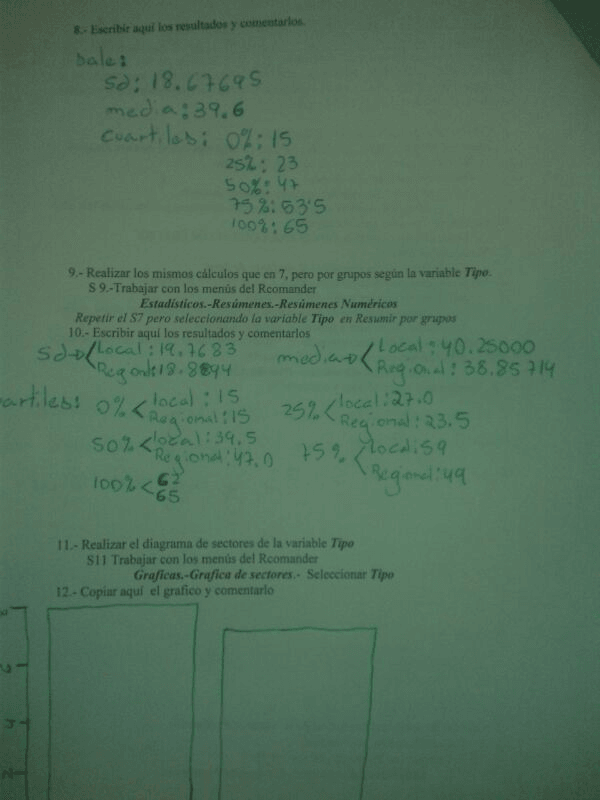 8.- Escribir aquí los resultados y comentarlos.
Dale:
sd: 18.67695
media: 39.6
Cuartiles: 0%: 15
25%: 23
50%: 47
75%: 53'5
100%: 65
9.- Realizar los mismos cálculos que en 7, pero por grupos según la variable Tipo.
S 9.-Trabajar con los menús del Rcomander
Estadísticos.-Resúmenes.-Resúmenes Numéricos
Repetir el S7 pero seleccionando la variable Tipo en Resumir por grupos
10.- Escribir aquí los resultados y comentarlos
sd Local: 19.7683 media Local: 40.25000
Regional: 38.85714
uartiles: 0% local: 15 25% local: 27.0
Regional: 15 Regional: 23.5
50% local: 39.5 75% Local: 59
Regional: 47.0 Regional: 49
100% 62
65
11.- Realizar el diagrama de sectores de la variable Tipo
S11 Trabajar con los menús del Rcomander
Graficas.-Grafica de sectores.- Seleccionar Tipo
12.- Copiar aquí el grafico y comentarlo